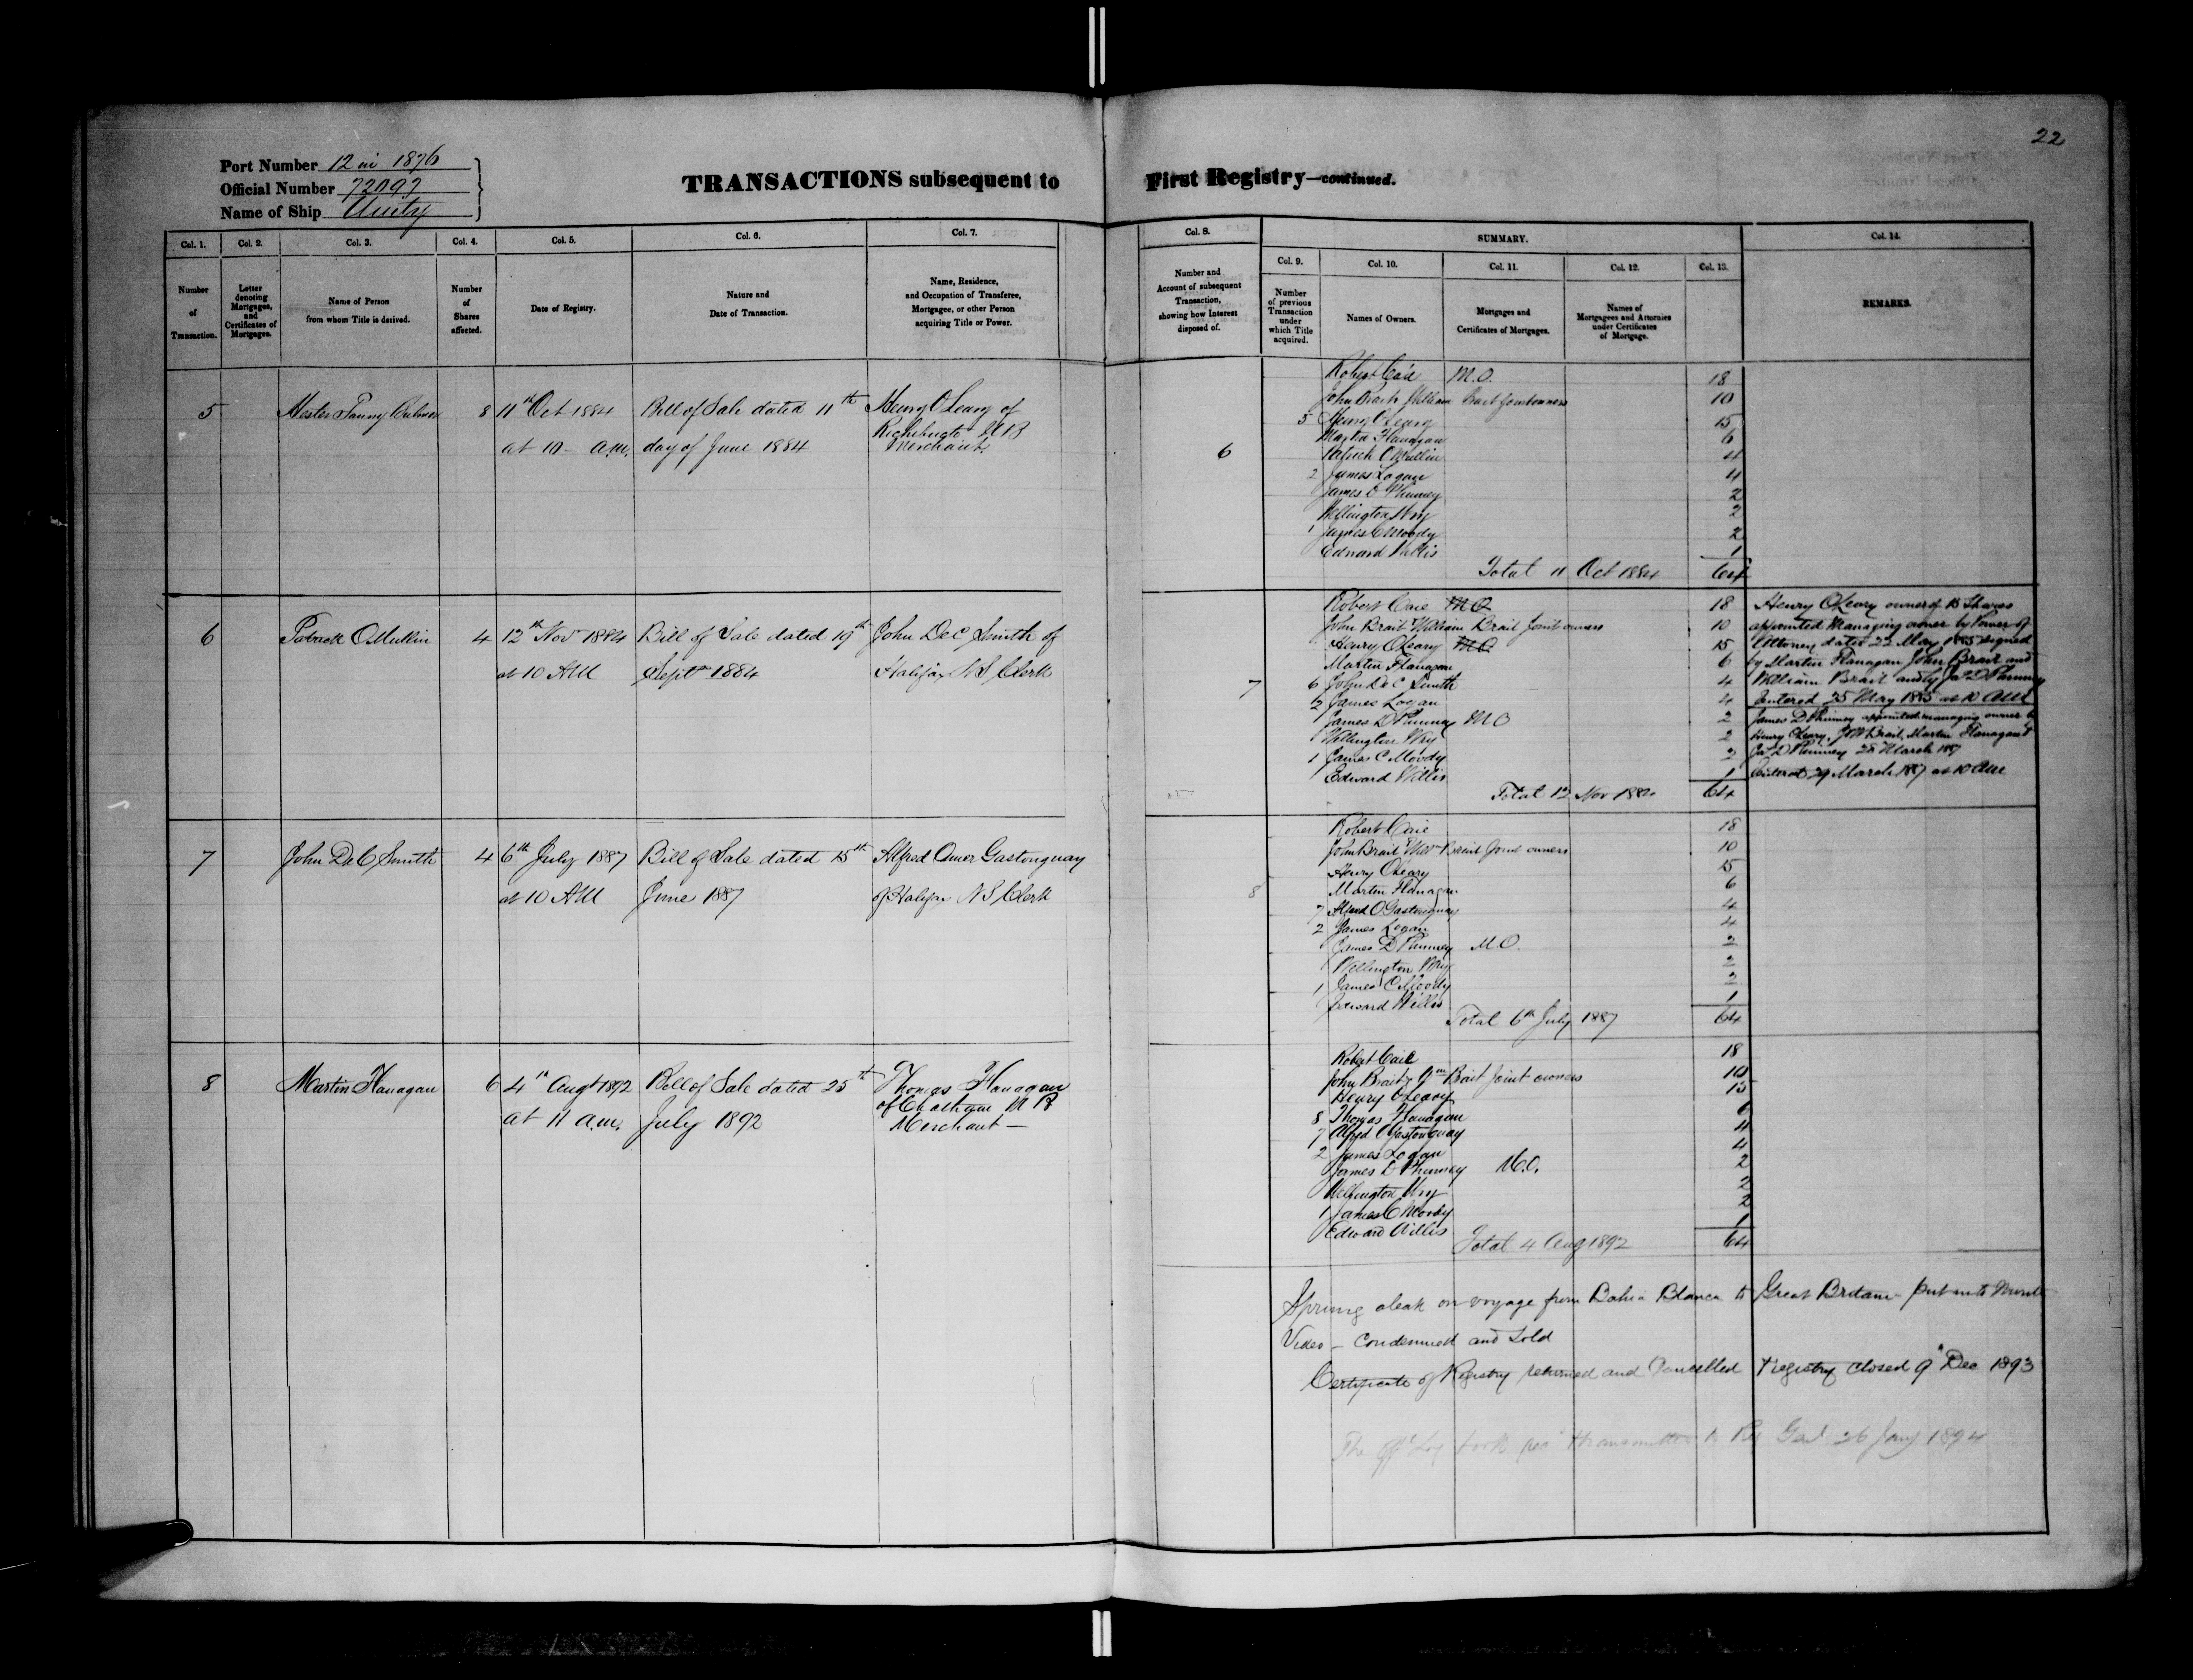 22
Port Number 12 in 1876
Official Number 72097
Name of Ship Unity
TRANSACTIONS subsequent to First Registry—continued.
Col. 1. Col. 2. Col. 3. Col. 4. Col. 5. Col. 6. Col. 7.
Number of Transaction.
Letter denoting Mortgages, and Certificates of Mortgages.
Name of Person from whom Title is derived.
Number of Shares affected.
Date of Registry.
Nature and Date of Transaction.
Name, Residence, and Occupation of Transferee, Mortgagee, or other Person acquiring Title or Power.
Col. 8. SUMMARY. Col. 14.
Col. 9. Col. 10. Col. 11. Col. 12. Col. 13.
Number and Account of subsequent Transaction, showing how Interest disposed of.
Number of previous Transaction under which Title acquired.
Names of Owners.
Mortgages and Certificates of Mortgages.
Names of Mortgagees and Attornies under Certificates of Mortgage.
REMARKS.
5 Hester Fanny 8 11th Oct 1884 Bill of Sale dated 11th Henry O'Leary of
at 10 - a.m. day of June 1884 Richibucto N B
Merchant
6
Robert Caie M.O. 18
John Brait William Brait Joint owners 10
5 Henry O'Leary 15
Martin Flanagan 6
Patrick O'Mullin 4
2 James Logan 4
James D Phinney 2
Wellington Wry 2
1 James C Moody 2
Edward Willis 1
Total 11 Oct 1884 64
6 Patrick O'Mullin 4 12th Nov 1884 Bill of Sale dated 19th John DeC Smith of
at 10 AM Septr 1884 Halifax N S Clerk
7
Robert Caie M O 18
John Brait William Brait Joint owners 10
Henry O'Leary M O 15
Martin Flanagan 6
6 John DeC Smith 4
2 James Logan 4
James D Phinney M O 2
Wellington Wry 2
1 James C Moody 2
Edward Willis 1
Total 12 Nov 1884 64
Henry O'Leary owner of 15 Shares
appointed Managing owner by Power of
Attorney dated 22 May 1885 signed
by Martin Flanagan John Brait and
William Brait and by Jas D Phinney
Entered 25 May 1885 at 10 AM
James D Phinney appointed managing owner by
Henry O'Leary, J & W Brait, Martin Flanagan &
Jas D Phinney 28 March 1887
Entered 29 March 1887 at 10 AM
7 John DeC Smith 4 6th July 1887 Bill of Sale dated 15th Alfred Omer Gastonguay
at 10 AM June 1887 of Halifax N S Clerk
8
Robert Caie 18
John Brait Wm Brait Joint owners 10
Henry O'Leary 15
Martin Flanagan 6
7 Alfred O Gastonguay 4
2 James Logan 4
James D Phinney M.O. 2
Wellington Wry 2
1 James C Moody 2
Edward Willis 1
Total 6th July 1887 64
8 Martin Flanagan 6 4th Augt 1892 Bill of Sale dated 25th Thomas Flanagan
at 11 a.m. July 1892 of Chatham N B
Merchant —
Robert Caie 18
John Brait & Wm Brait Joint owners 10
Henry O'Leary 15
8 Thomas Flanagan 6
7 Alfred O Gastonguay 4
2 James Logan 4
James D Phinney M.O. 2
Wellington Wry 2
1 James C Moody 2
Edward Willis 1
Total 4 Aug 1892 64
Sprung aleak on voyage from Bahia Blanca to Great Britain - put into Monte
Video - Condemned and Sold
Certificate of Registry returned and Cancelled Registry closed 9th Dec 1893
The offl Log book transmitted to Reg Genl 26 Jany 1894